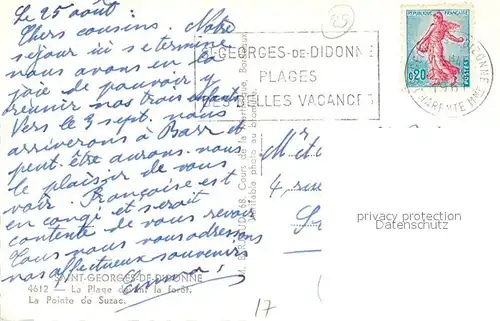 Le 25 août.
25
Chers cousins. Notre
séjour ici se termine
nous avons eu la
joie de pouvoir y
réunir nos trois enfants
Vers le 3 sept. nous
arriverons à Barr et
peut être aurons-nous
le plaisir de vous
voir. Françoise est
en congé et serait
contente de vous revoir
Tous nous vous adressons
nos affectueux souvenirs
ST-GEORGES-DE-DIDONNE
PLAGES
DES BELLES VACANCES
REPUBLIQUE FRANÇAISE
0,20
POSTES
CHARENTE MME
68, Cours de la Martinique, Bordeaux
Véritable photo au bromure
Mr et
4, rue
privacy protection
Datenschutz
SAINT-GEORGES-DE-DIDONNE
4612 — La Plage devant la forêt.
La Pointe de Suzac.
17